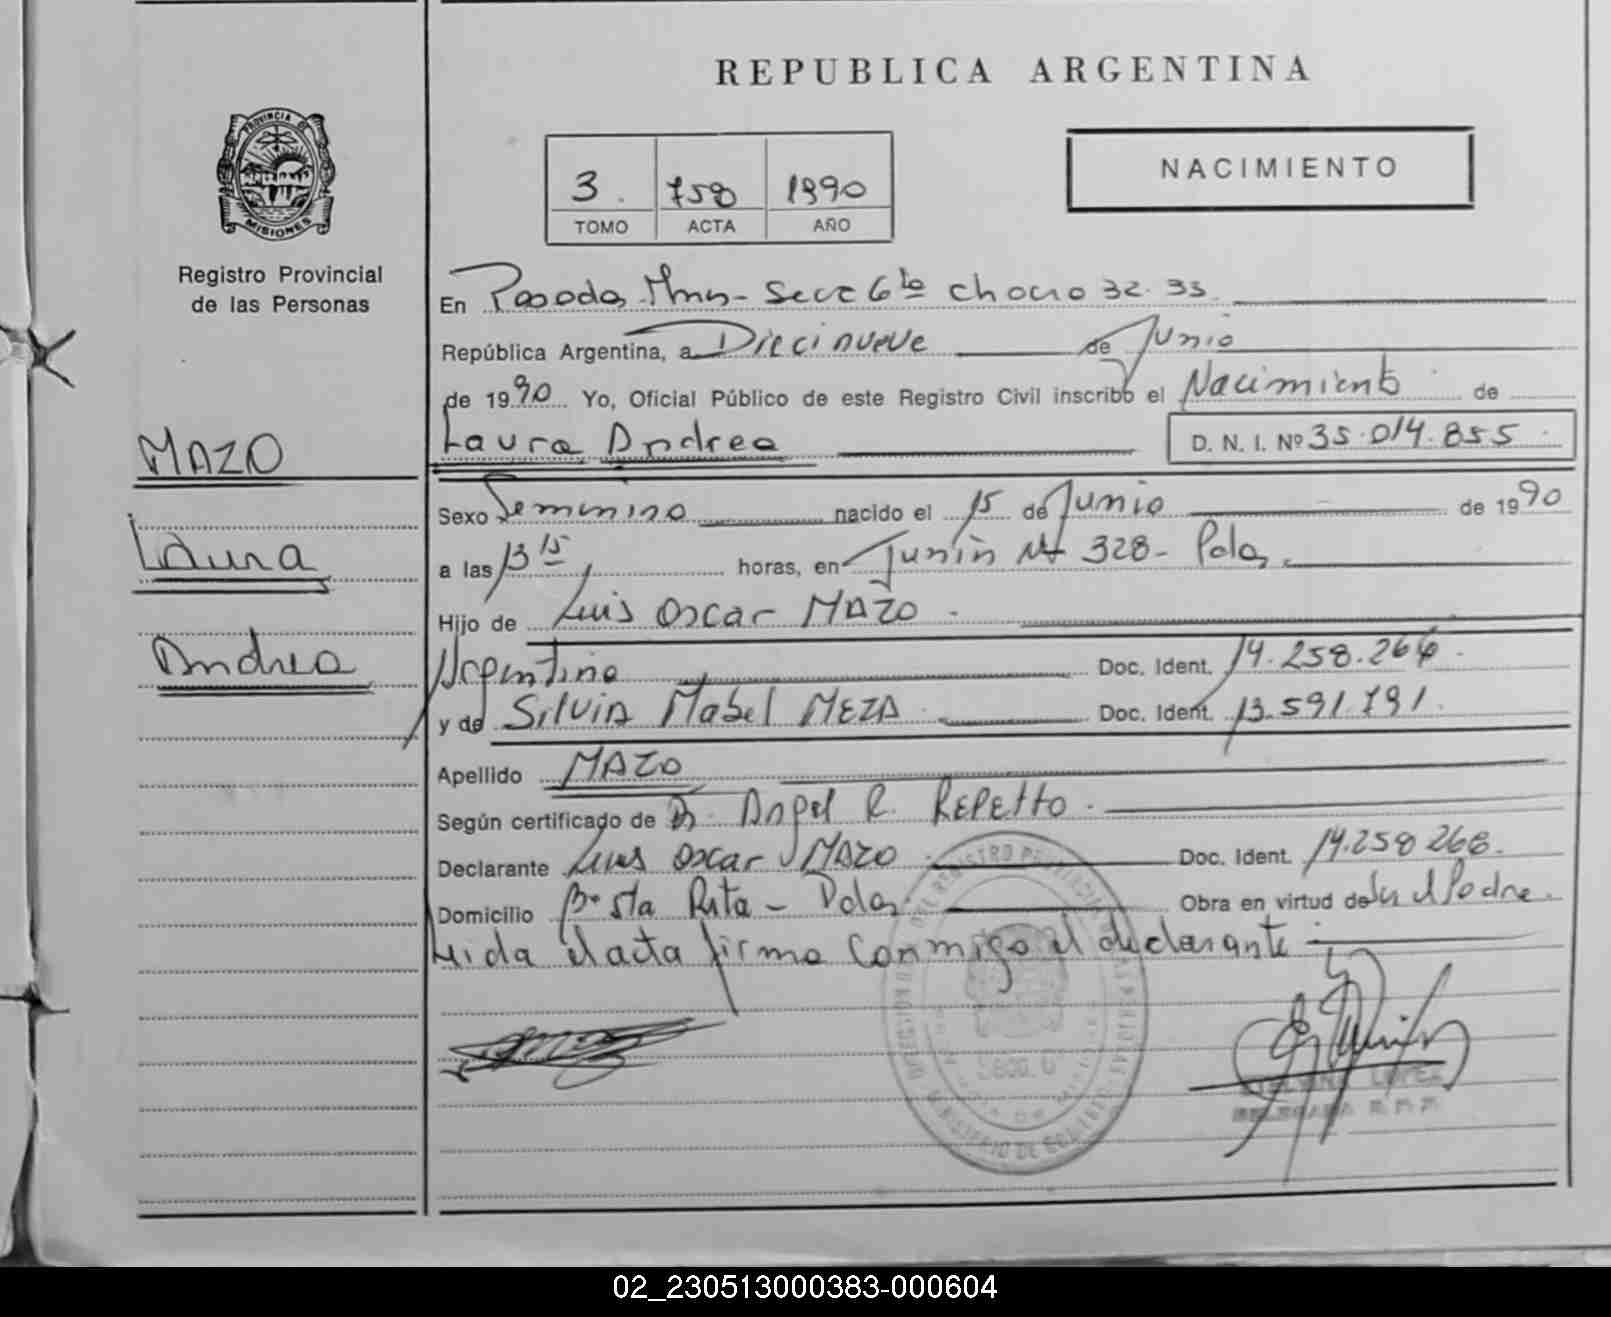 REPUBLICA ARGENTINA
NACIMIENTO
3. 758 1990
TOMO ACTA AÑO
PROVINCIA DE
MISIONES
Registro Provincial
de las Personas
En Posadas Mnes - Secc 6ta chacra 32-33
República Argentina, a Diecinueve de Junio
de 1990 Yo, Oficial Público de este Registro Civil inscribo el Nacimiento de
Laura Andrea D. N. I. Nº 35.014.855
MAZO
Laura
Andrea
Sexo Femenino nacido el 15 de Junio de 1990
a las 13 15 horas, en Junín Nº 328 - Pdas.
Hijo de Luis Oscar MAZO -
Argentino Doc. Ident. 14.258.266
y de Silvia Mabel MEZA Doc. Ident. 13.591.791.
Apellido MAZO
Según certificado de Dr. Angel R. REPETTO -
Declarante Luis Oscar MAZO Doc. Ident. 14.258 268.
Domicilio Bº Sta Rita - Pdas. Obra en virtud de Ser el Padre.
Leida el acta firma conmigo el declarante -
SECC. 6
LOPEZ
DELEGADA R.P.P.
02_230513000383-000604